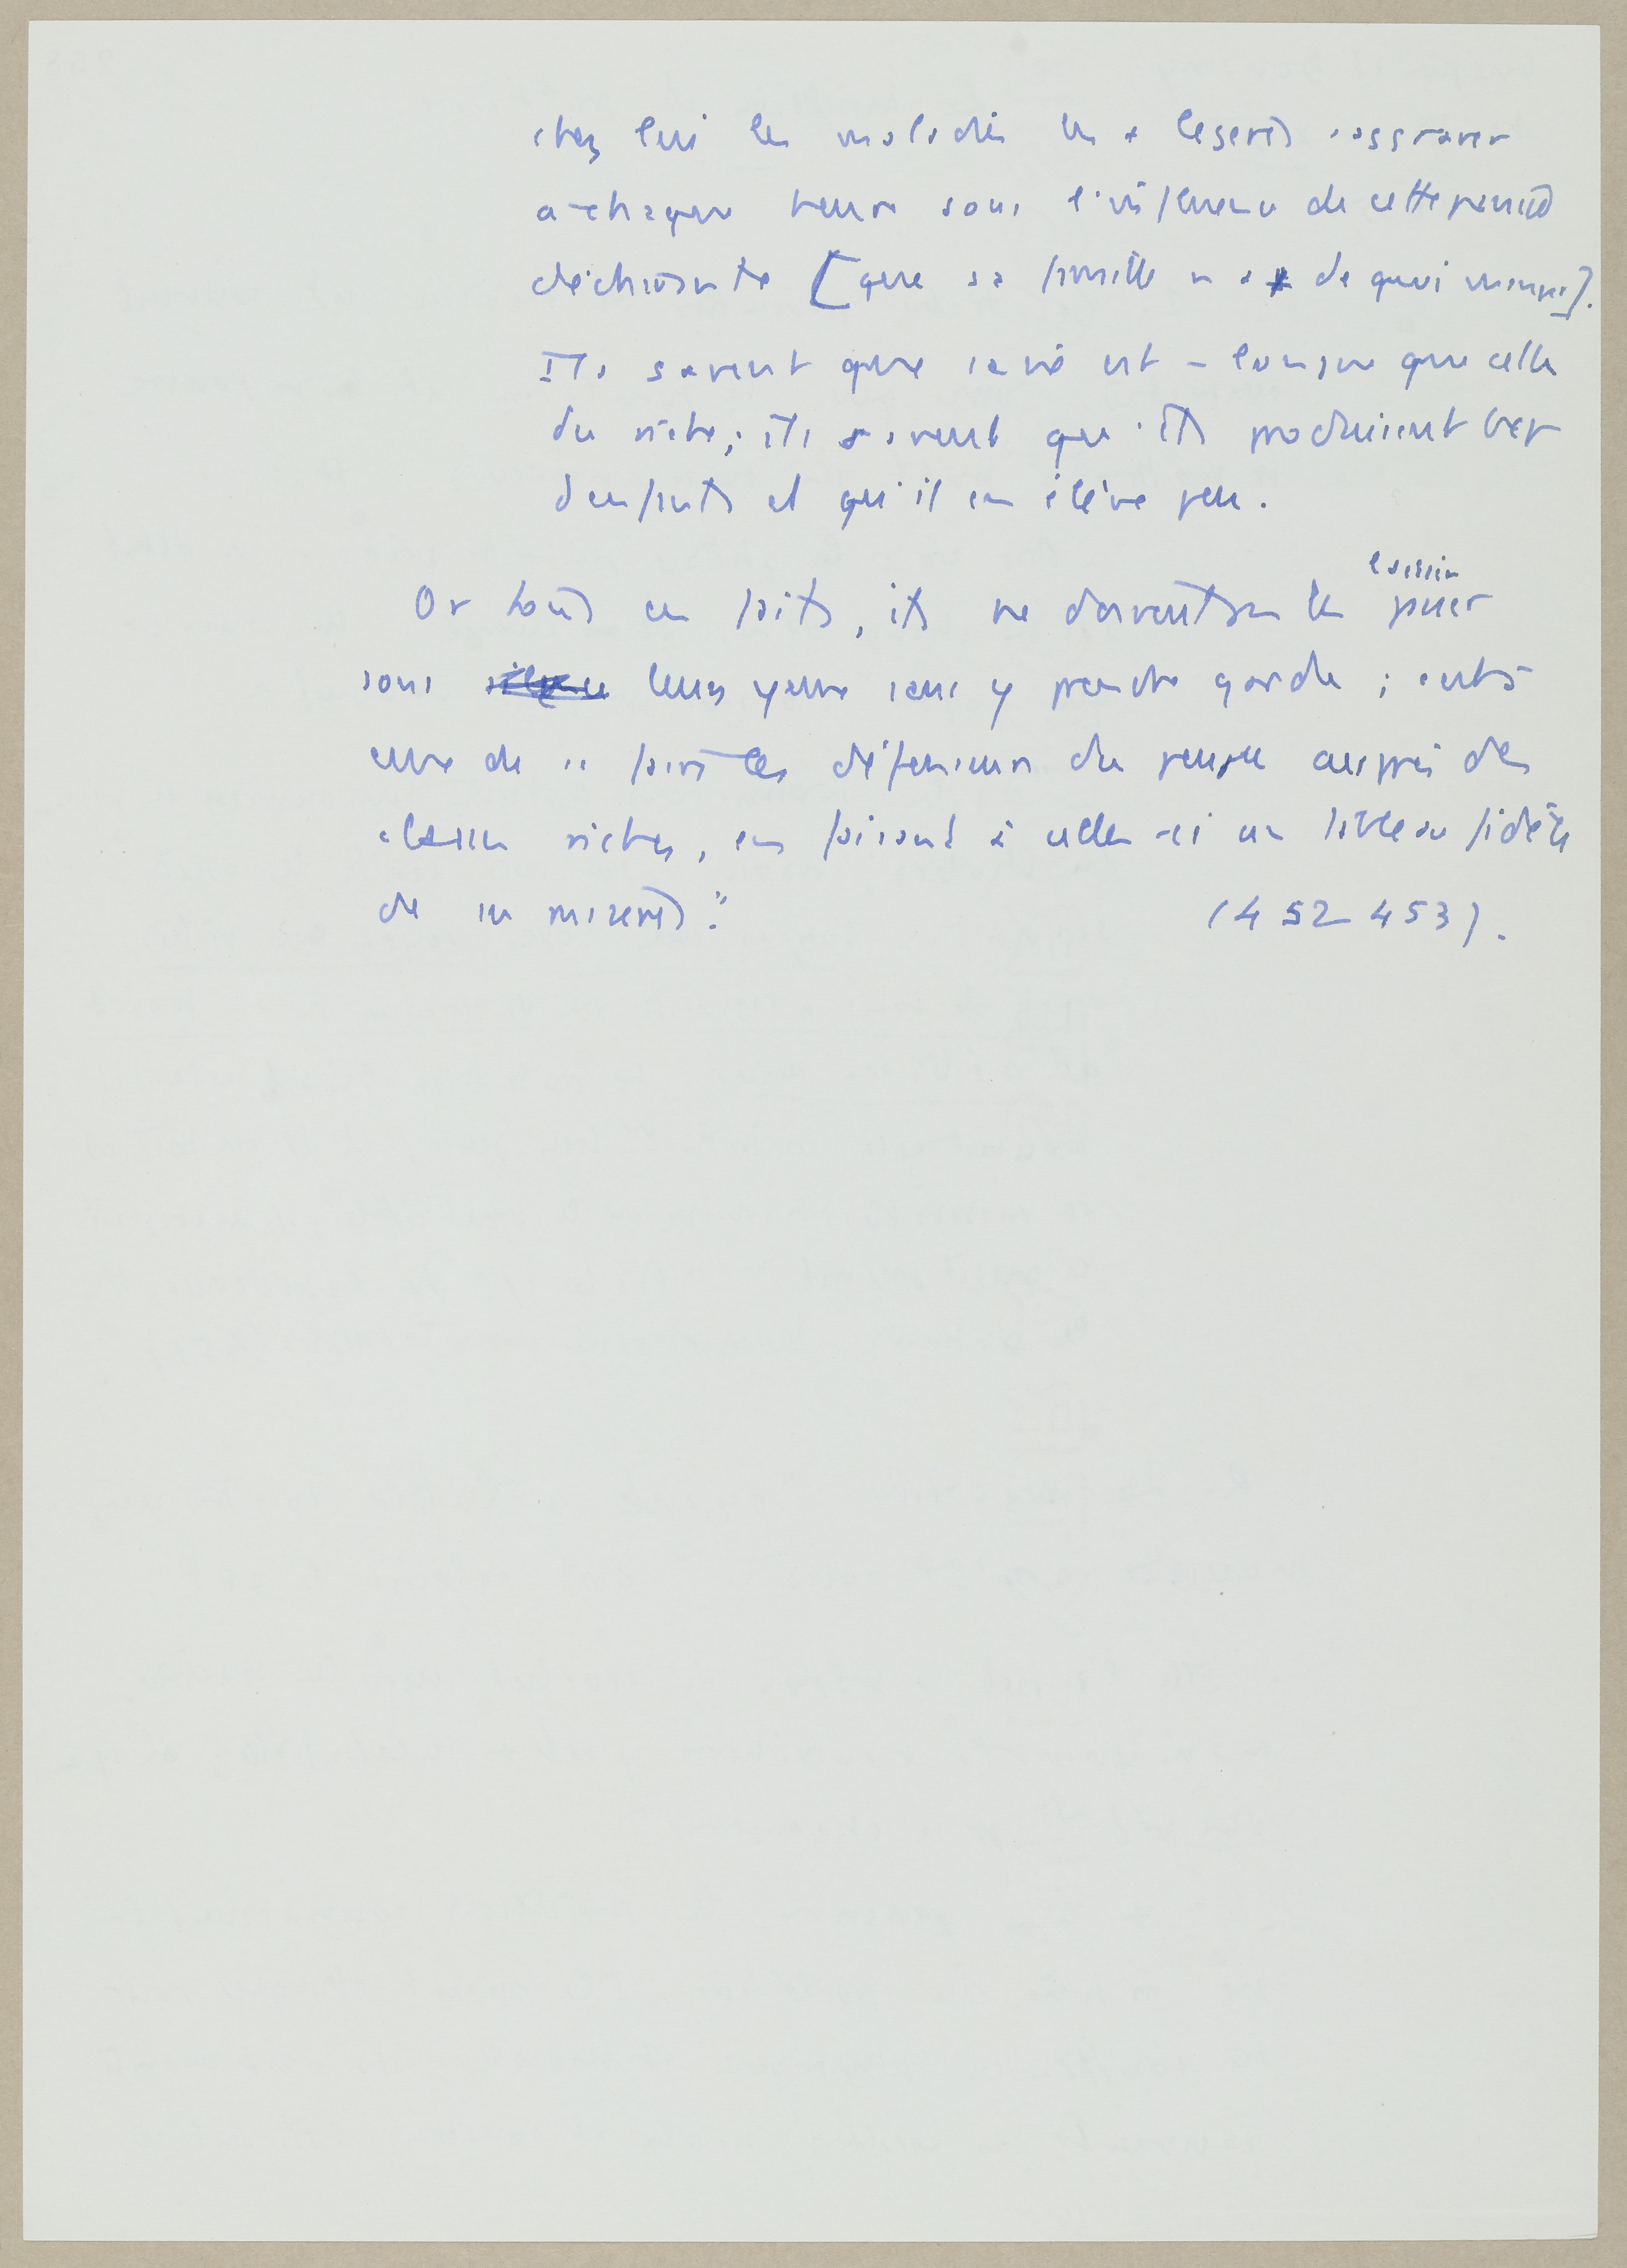 chez lui les maladies les + légères s'aggraver
à chaque heure sous l'influence de cette pensée
déchirante [que sa famille n'a de quoi manger].
Ils savent que sa vie est - longue que celle
du riche ; ils savent qu'ils produisent bcp
d'enfants et qu'il en élève peu.
Or tous ces faits, ils ne doivent pas les laisser passer
sous leurs yeux sans y prendre garde ; c'est à
eux de se faire les défenseurs du peuple auprès des
classes riches, en faisant à celles-ci un tableau fidèle
de ses misères."
(452 453).